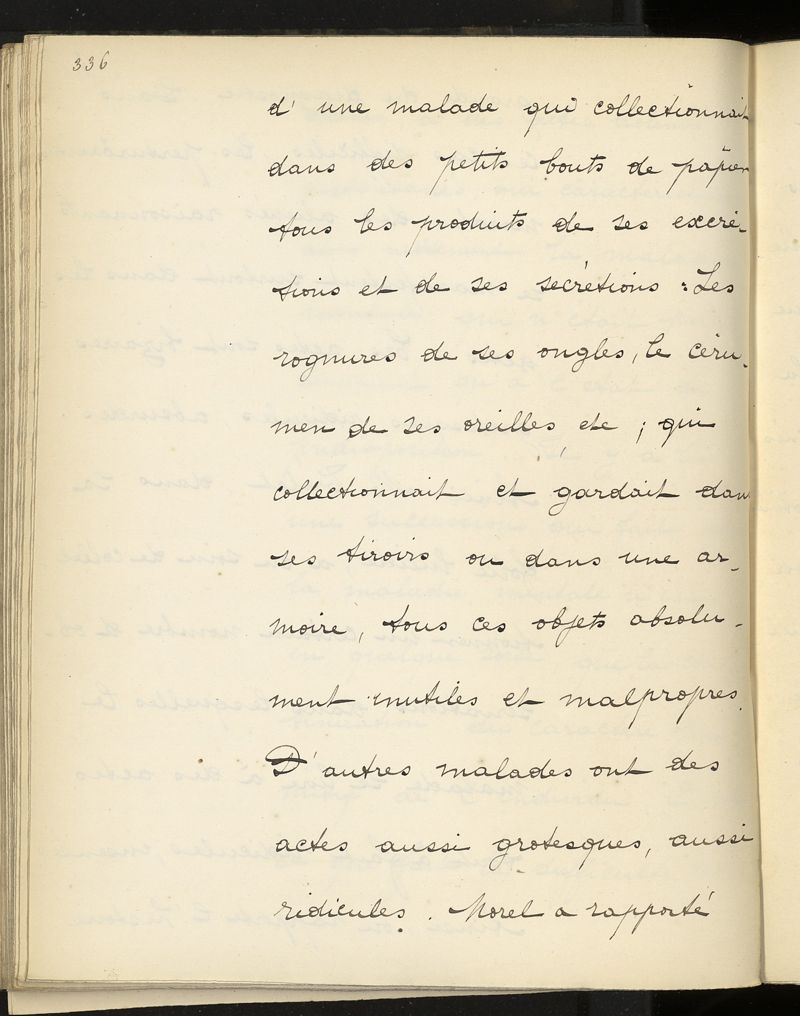 336
d'une malade qui collectionnait
dans des petits bouts de papier
tous les produits de ses excré-
tions et de ses secrétions : Les
rognures de ses ongles, le céru-
men de ses oreilles etc ; qui
collectionnait et gardait dans
ses tiroirs ou dans une ar-
moire, tous ces objets absolu-
ment inutiles et malpropres.
D'autres malades ont des
actes aussi grotesques, aussi
ridicules. Morel a rapporté